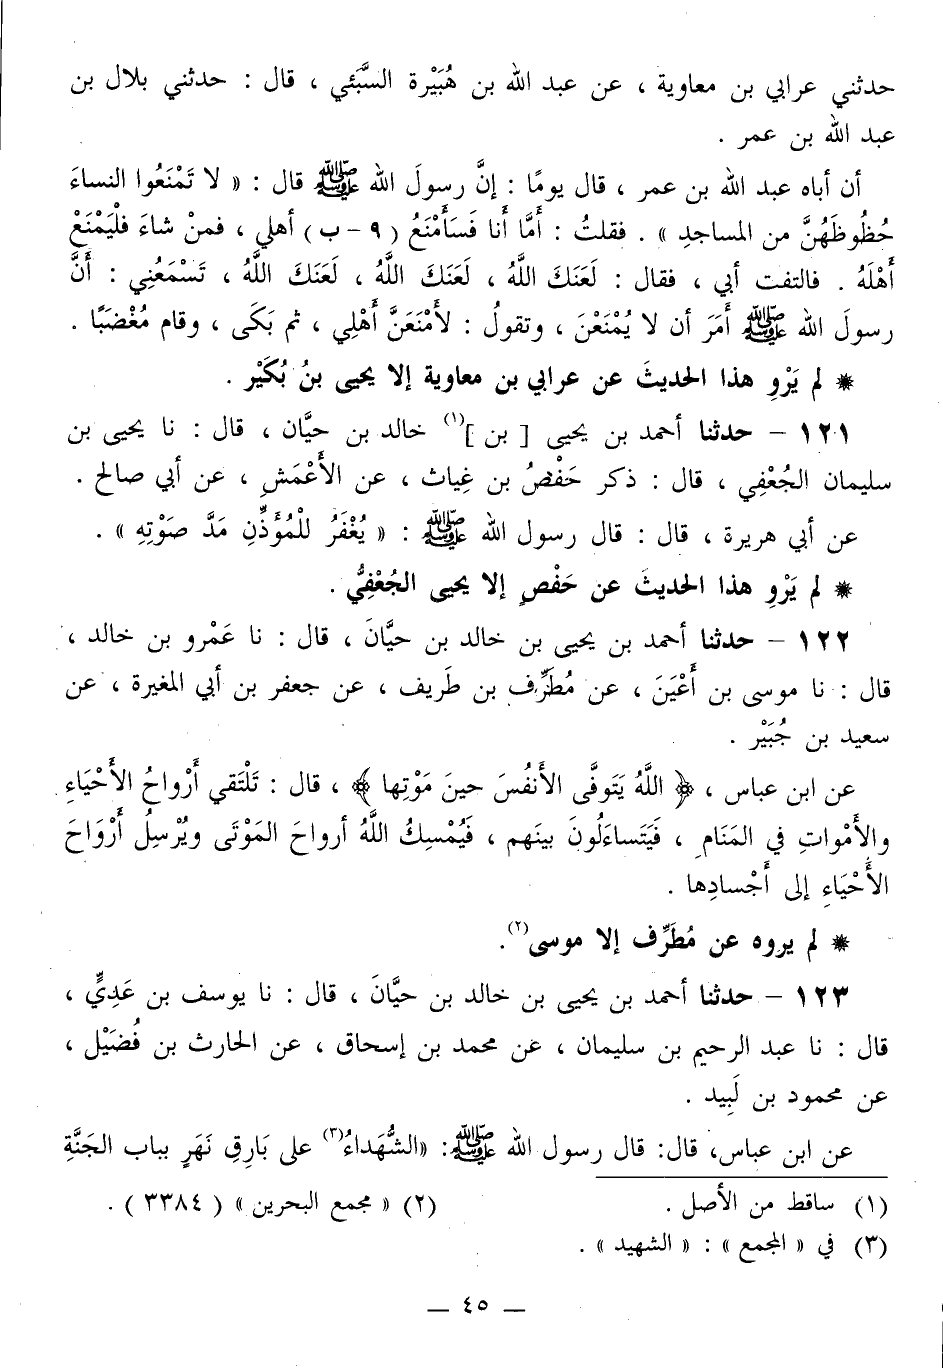 حدثني عرابي بن معاوية ، عن عبد الله بن هُبَيْرة السَّبَئي ، قال : حدثني بلال بن
عبد الله بن عمر .
أن أباه عبد الله بن عمر ، قال يومًا : إنَّ رسولَ الله ﷺ قال : « لا تَمْنَعُوا النساءَ
حُظُوظَهُنَّ من المساجدِ » . فقلتُ : أمَّا أنا فَسَأَمْنَعُ ( ٩ - ب ) أهلي ، فمنْ شاءَ فلْيَمْنَعْ
أَهْلَهُ . فالتفت أبي ، فقال : لَعَنَكَ اللَّهُ ، لَعَنَكَ اللَّهُ ، لَعَنَكَ اللَّهُ ، تَسْمَعُنِي : أَنَّ
رسولَ الله ﷺ أَمَرَ أن لا يُمْنَعْنَ ، وتقولُ : لأَمْنَعَنَّ أَهْلِي ، ثم بَكَى ، وقام مُغْضَبًا .
* لم يَرْوِ هذا الحديثَ عن عرابي بن معاوية إلا يحيى بنُ بُكَيْر .
١٢١ – حدثنا أحمد بن يحيى [ بن ]⁽١⁾ خالد بن حيَّان ، قال : نا يحيى بن
سليمان الجُعْفِي ، قال : ذكر حَفْصُ بن غِياث ، عن الأَعْمَشِ ، عن أبي صالح .
عن أبي هريرة ، قال : قال رسول الله ﷺ : « يُغْفَرُ للْمُؤَذِّنِ مَدَّ صَوْتِهِ » .
* لم يَرْوِ هذا الحديثَ عن حَفْصٍ إلا يحيى الجُعْفِيُّ .
١٢٢ – حدثنا أحمد بن يحيى بن خالد بن حيَّانَ ، قال : نا عَمْرو بن خالد ،
قال : نا موسى بن أَعْيَنَ ، عن مُطَرِّف بن طَريف ، عن جعفر بن أبي المغيرة ، عن
سعيد بن جُبَيْر .
عن ابن عباس ، ﴿ اللَّهُ يَتَوفَّى الأَنفُسَ حينَ مَوْتِها ﴾ ، قال : تَلْتَقي أَرْواحُ الأَحْياءِ
والأَمْواتِ في المَنَامِ ، فَيَتَساءَلُونَ بينَهم ، فَيُمْسِكُ اللَّهُ أرواحَ المَوْتَى ويُرْسِلُ أَرْوَاحَ
الأَحْيَاءِ إلى أَجْسادِها .
* لم يروه عن مُطَرِّف إلا موسى⁽٢⁾.
١٢٣ – حدثنا أحمد بن يحيى بن خالد بن حيَّانَ ، قال : نا يوسف بن عَدِيٍّ ،
قال : نا عبد الرحيم بن سليمان ، عن محمد بن إسحاق ، عن الحارث بن فُضَيْل ،
عن محمود بن لَبِيد .
عن ابن عباس، قال: قال رسول الله ﷺ: «الشُّهَداءُ⁽٣⁾ على بَارِقِ نَهَرٍ بباب الجَنَّةِ
(١) ساقط من الأصل . (٢) « مجمع البحرين » ( ٣٣٨٤ ) .
(٣) في « المجمع » : « الشهيد » .
— ٤٥ —